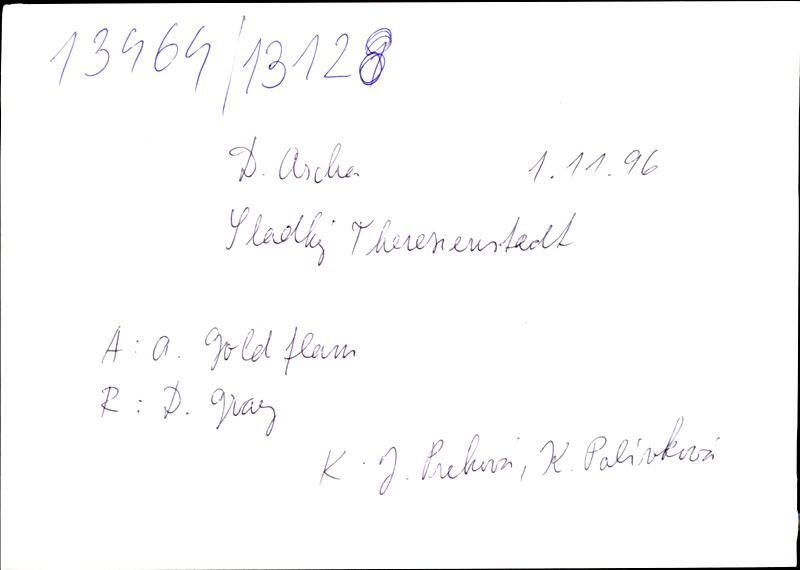 13464/13128
D. Archa 1.11.96
Sladký Theresienstadt
A: A. Goldflam
R: D. Gray
K: J. Preková, K. Polívková